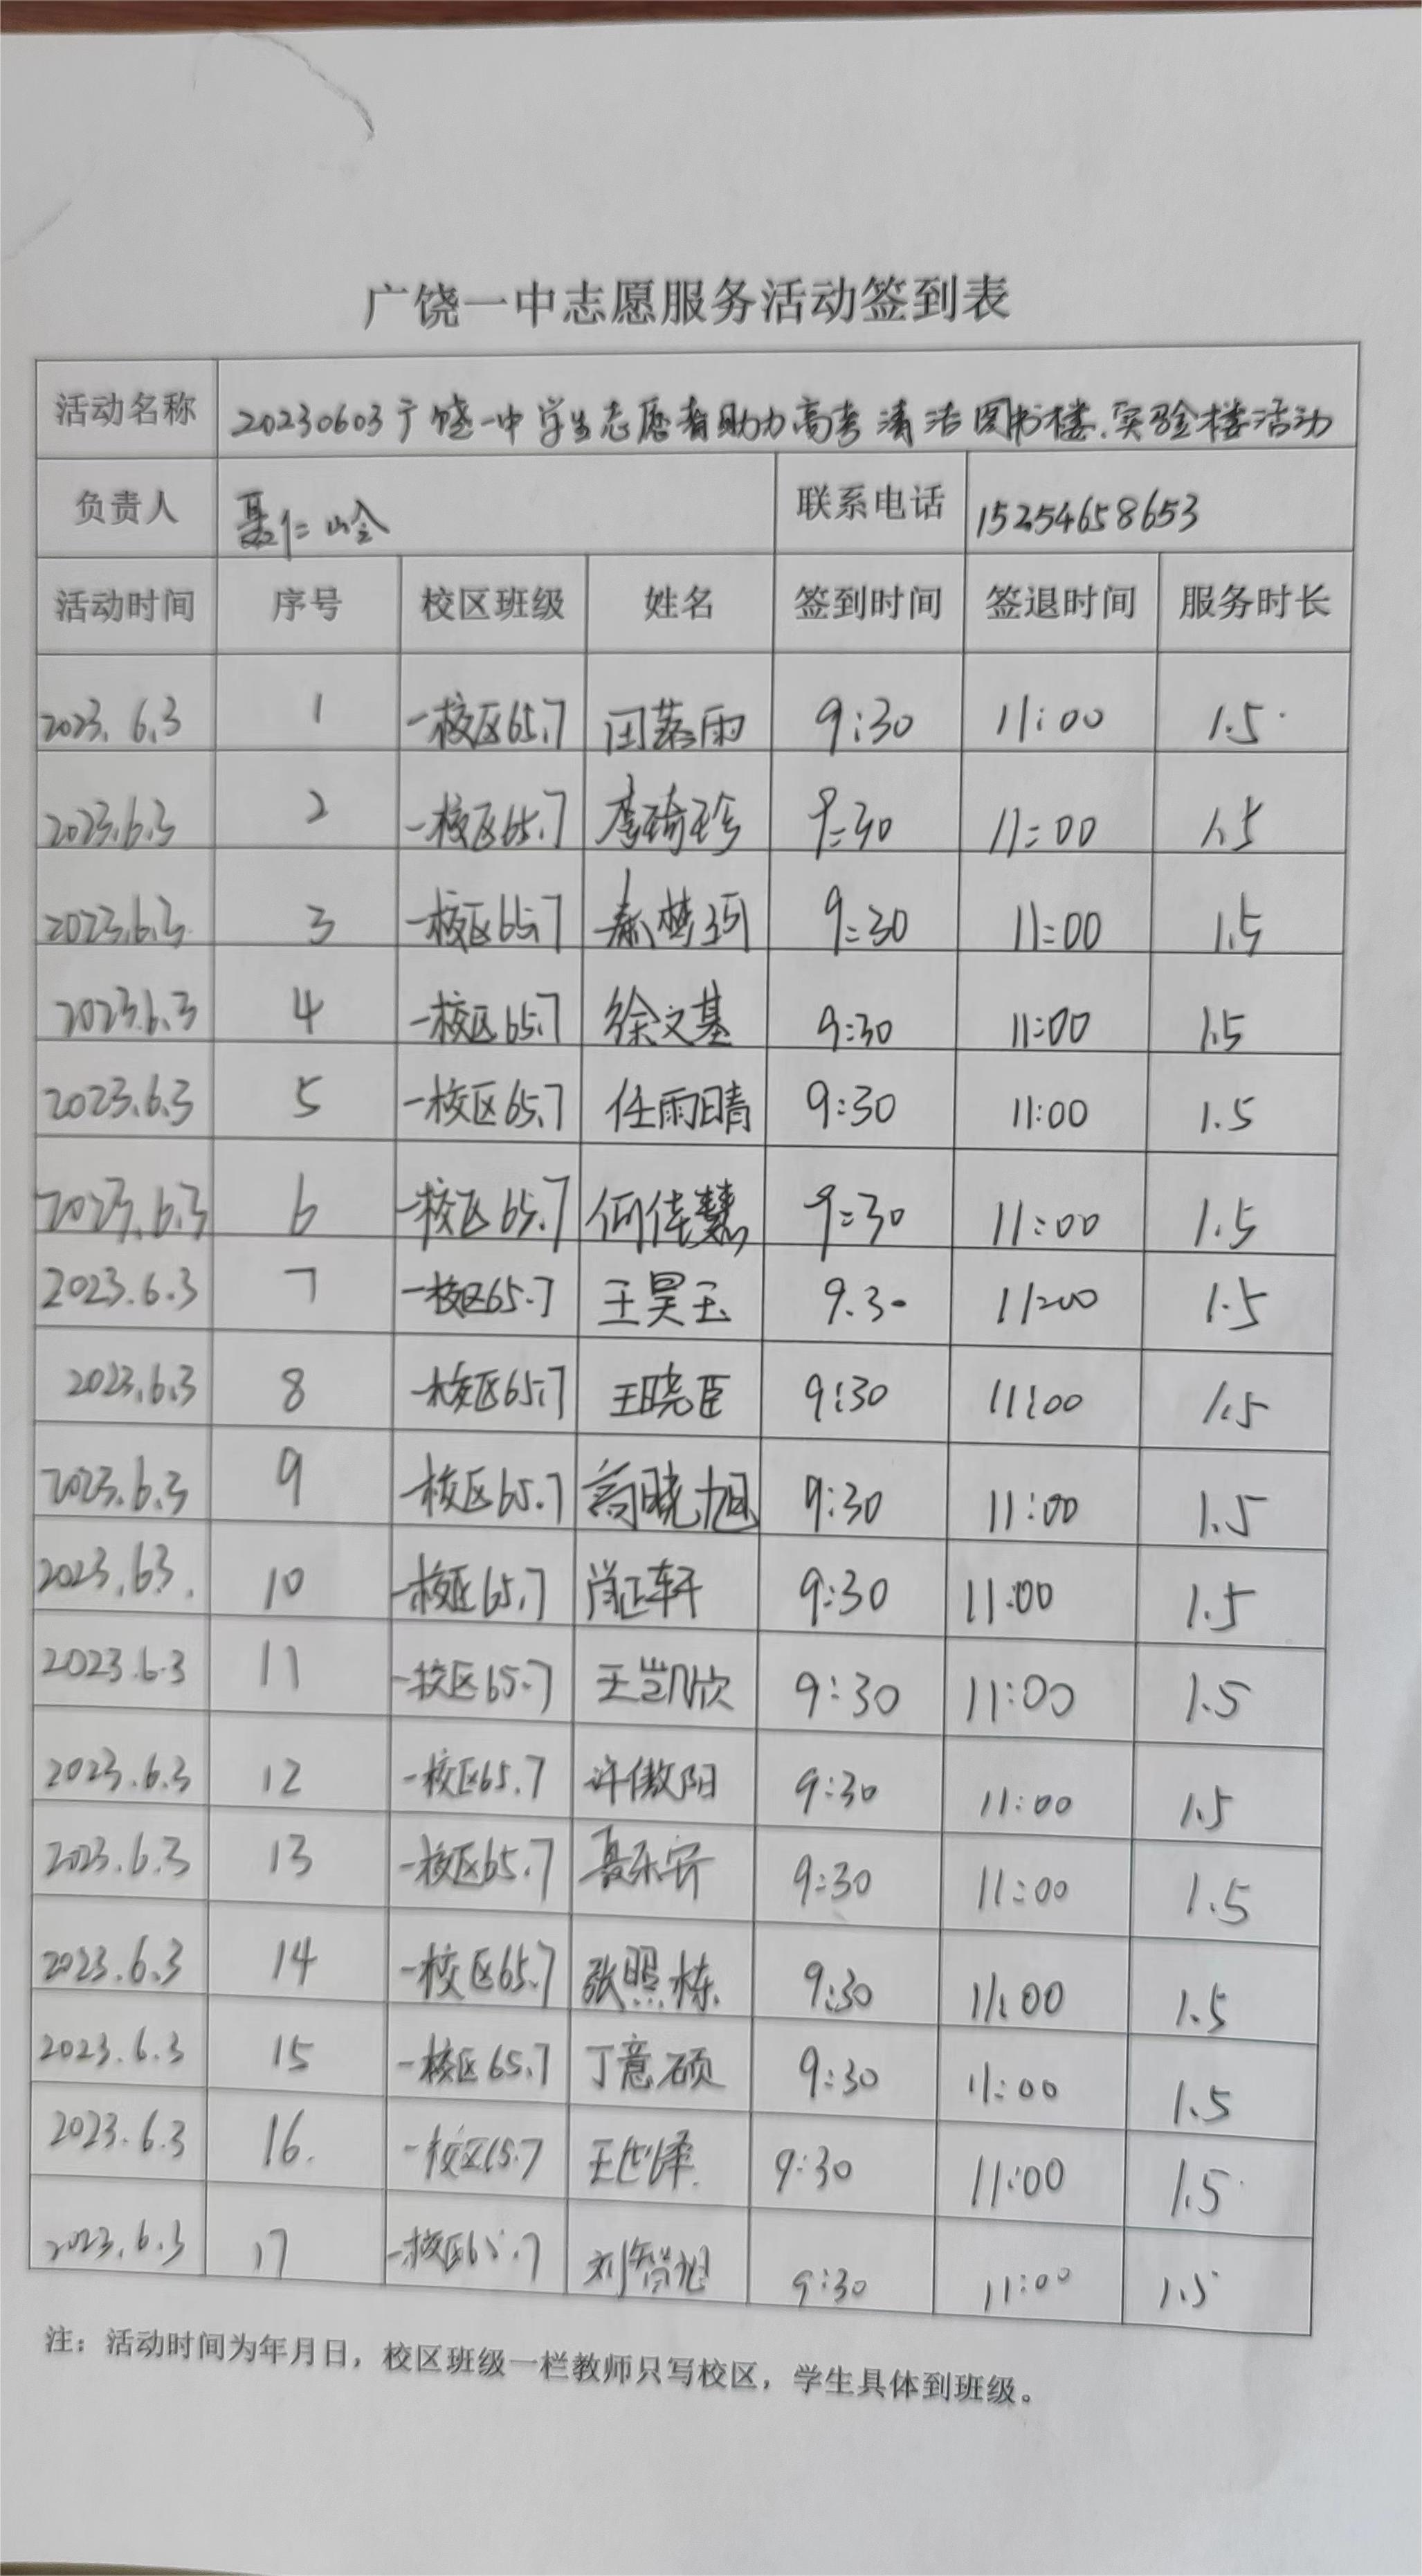 广饶一中志愿服务活动签到表
活动名称 20230603广饶一中学生志愿者助力高考清洁图书楼、实验楼活动
负责人 聂仁岭 联系电话 15254658653
活动时间 序号 校区班级 姓名 签到时间 签退时间 服务时长
2023.6.3 1 一校区65.7 雨 9:30 11:00 1.5
2023.6.3 2 一校区65.7 李琦珍 9:30 11:00 1.5
2023.6.3 3 一校区65.7 秦梦 9:30 11:00 1.5
2023.6.3 4 一校区65.7 徐文基 9:30 11:00 1.5
2023.6.3 5 一校区65.7 任雨晴 9:30 11:00 1.5
2023.6.3 6 一校区65.7 何佳慧 9:30 11:00 1.5
2023.6.3 7 一校区65.7 王昊玉 9.30 11:00 1.5
2023.6.3 8 一校区65.7 王晓臣 9:30 11:00 1.5
2023.6.3 9 一校区65.7 高晓旭 9:30 11:00 1.5
2023.63. 10 一校区65.7 肖正轩 9:30 11:00 1.5
2023.6.3 11 一校区65.7 王凯欣 9:30 11:00 1.5
2023.6.3 12 一校区65.7 许傲阳 9:30 11:00 1.5
2023.6.3 13 一校区65.7 聂乐齐 9:30 11:00 1.5
2023.6.3 14 一校区65.7 张照栋 9:30 11:00 1.5
2023.6.3 15 一校区65.7 丁意硕 9:30 11:00 1.5
2023.6.3 16. 一校区65.7 王世泽 9:30 11:00 1.5
2023.6.3 17 一校区65.7 刘智旭 9:30 11:00 1.5
注：活动时间为年月日，校区班级一栏教师只写校区，学生具体到班级。